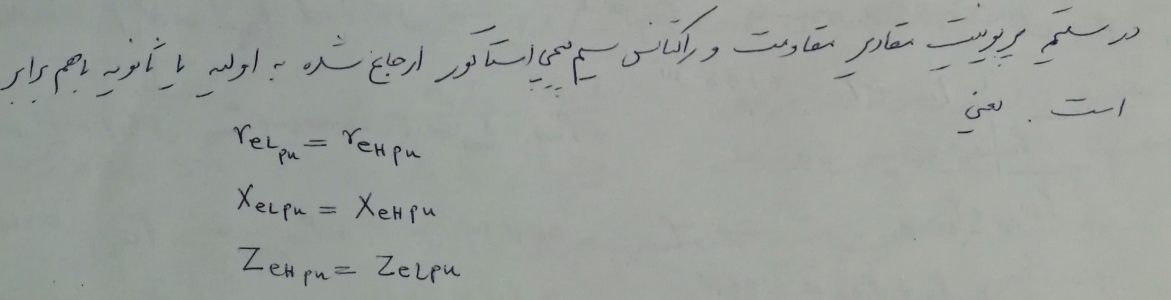 در سیستم پریونیت مقادیر مقاومت و راکتانس سیم پیچی استاتور ارجاع شده به اولیه یا ثانویه باهم برابر
است. یعنی
reLpu = reHpu
XeLpu = XeHpu
ZeHpu = ZeLpu